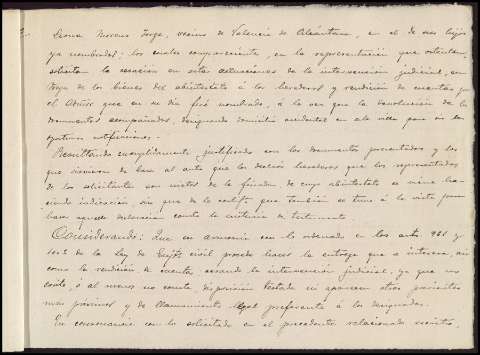 Moreno Jorge, vecino de Valencia de Alcántara, en el de sus hijos
ya nombrados; los cuales comparecientes, en la representación que ostentan,
solicitan la cesación en estas actuaciones de la intervención judicial, en-
trega de los bienes del abintestato á los herederos y rendición de cuentas por
el que en su día fué nombrado, á la vez que la devolución de
documentos acompañados, designando domicilio accidental en esta villa para
notificaciones.
Resultando cumplidamente justificado con los documentos presentados y los
que sirvieron de base al auto que los declaró herederos que los representados
de los solicitantes son de la finada de cuyo abintestato se viene ha-
ciendo indicación, sin que de la certifi- que también se tuvo á la vista para
hacer aquella declaración conste la existencia de testamento.
Considerando: Que en armonía con lo ordenado en los arts 981 y
de la Ley de Enjto civil procede hacer la entrega que se interesa, así
como la rendición de cuentas cesando la intervención judicial, ya que no
existe, ó al menos no consta, disposición testada ni aparecen otros parientes
mas próximos y de llamamiento legal preferente á los designados.
En consonancia con lo solicitado en el precedente relacionado escrito,